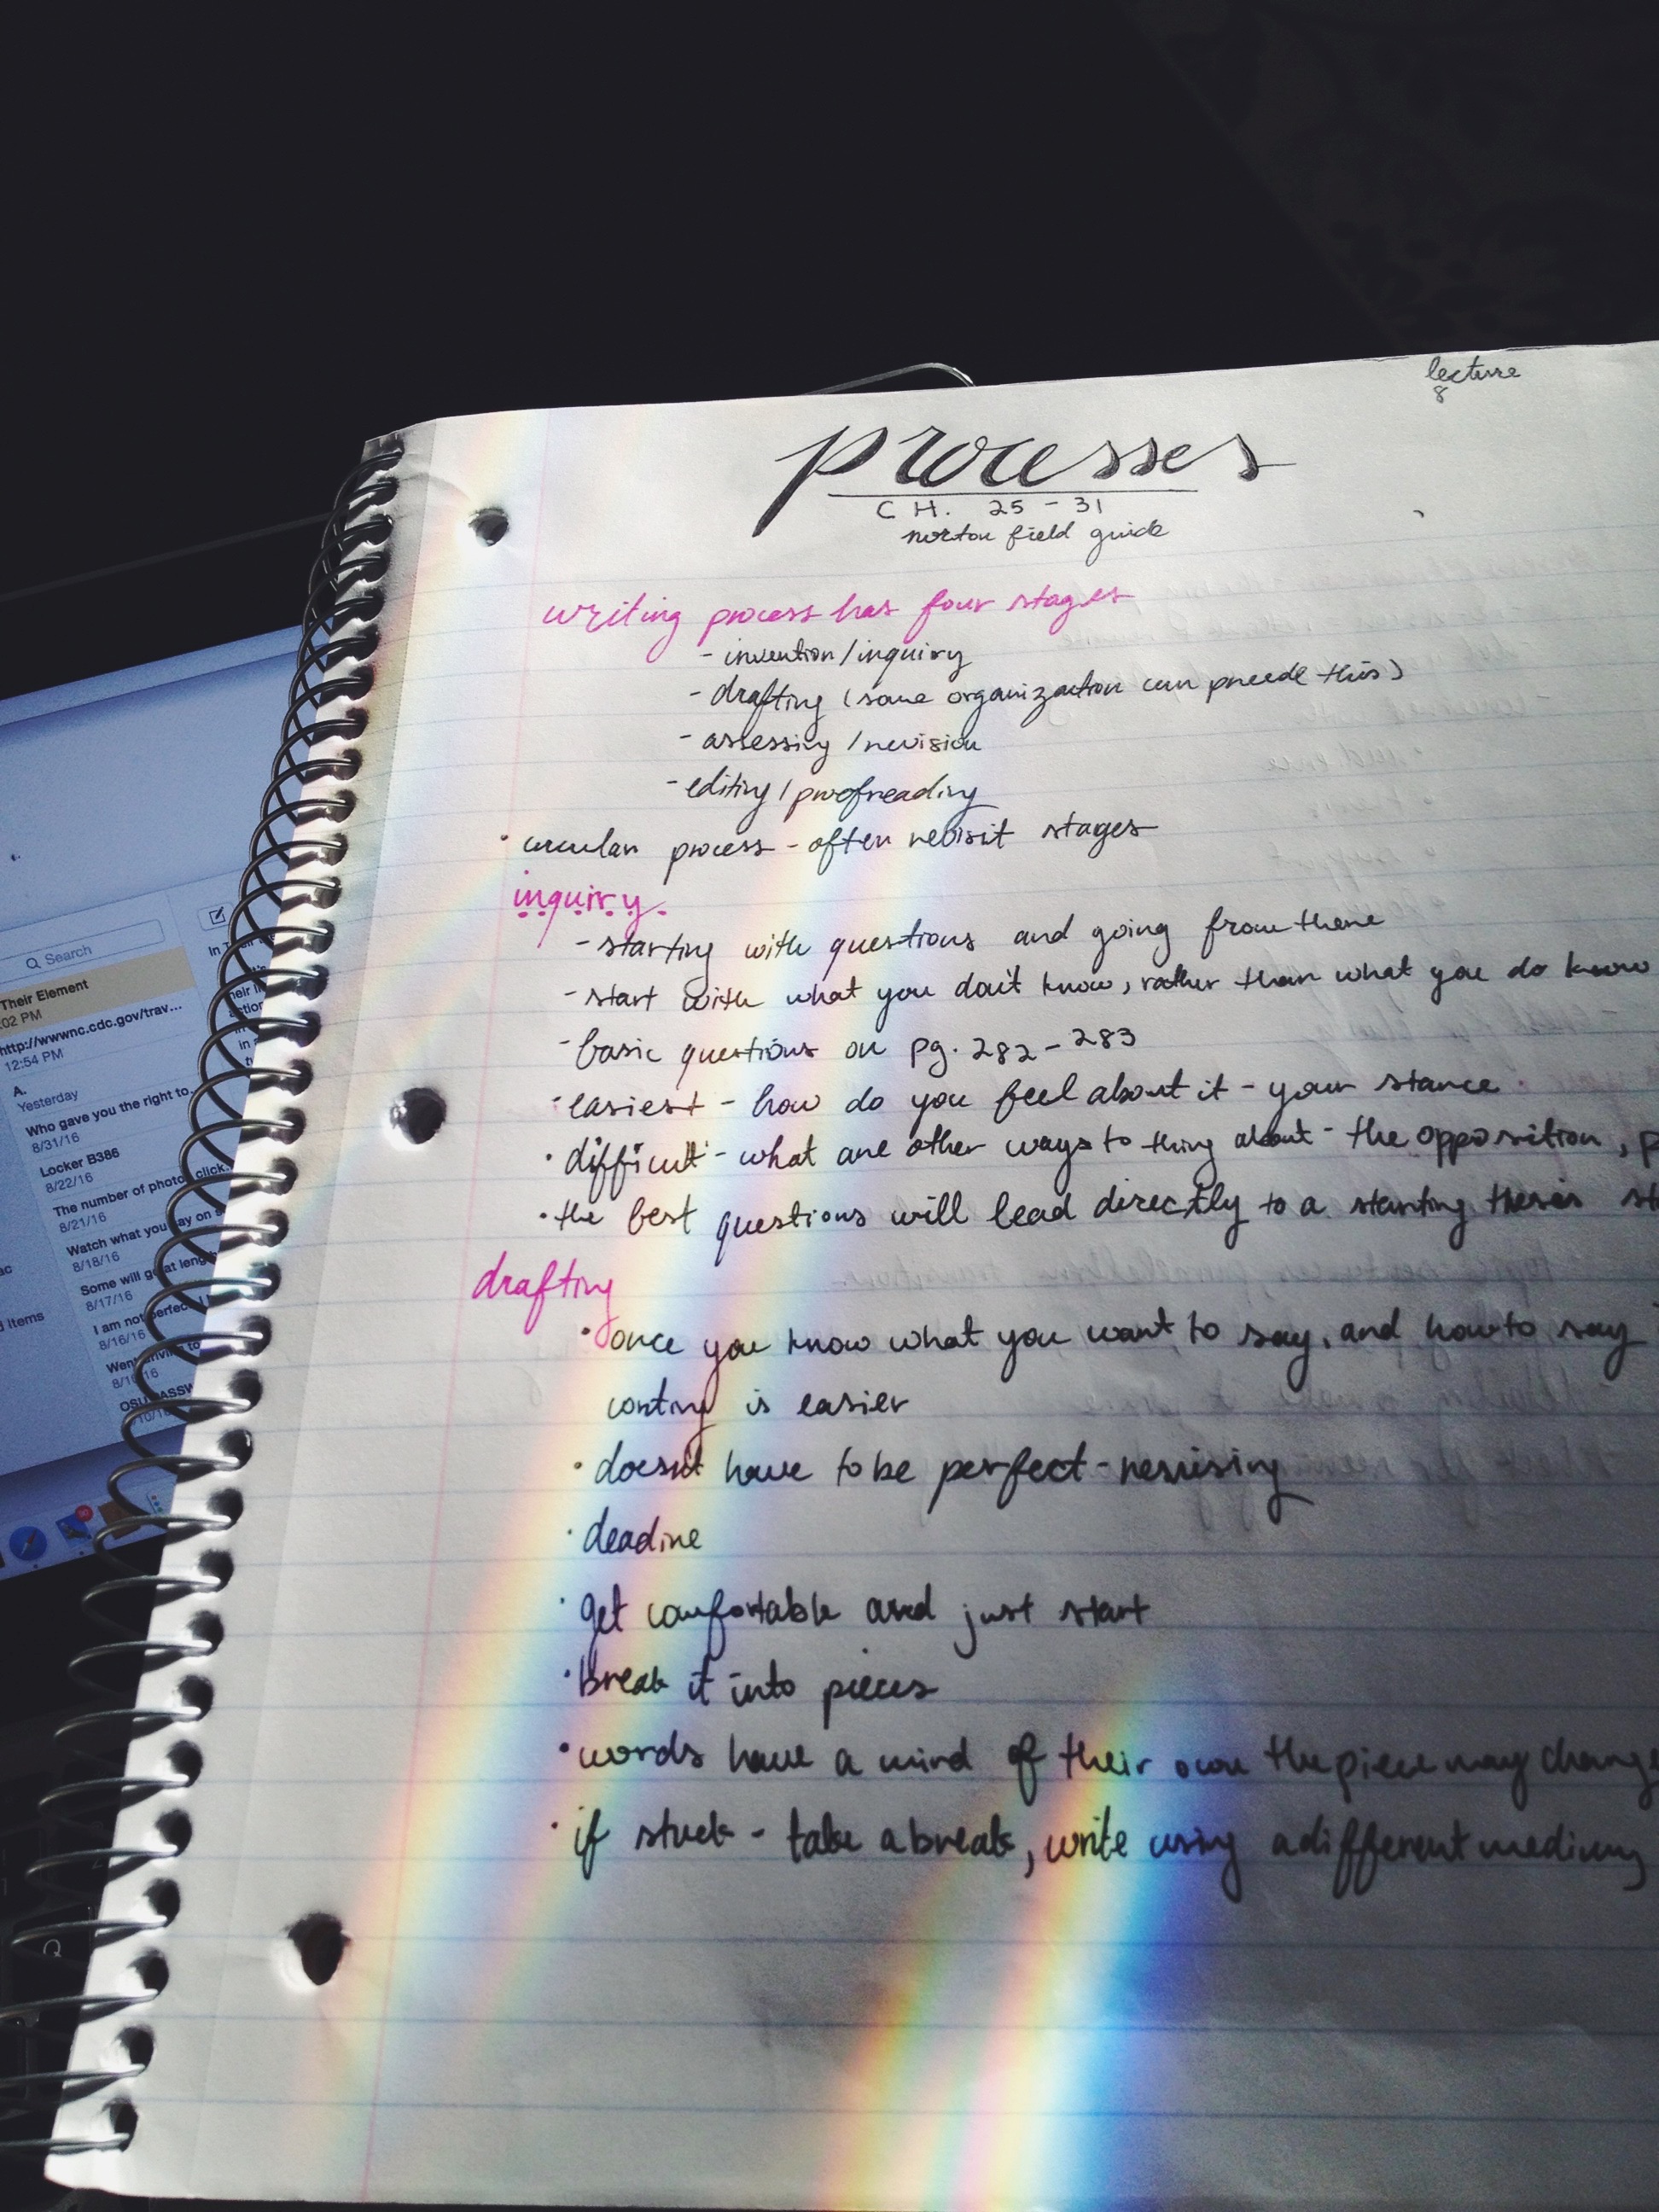 lecture
8
processes
CH. 25-31
norton field guide
writing process has four stages
- invention/inquiry
- drafting (some organization can precede this)
- assessing/revision
- editing/proofreading
• circular process - often revisit stages
inquiry
- starting with questions and going from there
- start with what you don't know, rather than what you do know
- basic questions on pg. 282-283
• easiest - how do you feel about it - your stance
• difficult - what are other ways to thing about - the opposition, p
• the best questions will lead directly to a starting thesis st
drafting
• once you know what you want to say, and how to say
is easier
• doesn't have to be perfect - revising
• deadine
• get comfortable and just start
• break it into pieces
• words have a mind of their own the piece may change
• if stuck - take a break, write using a different medium
Search
Their Element
:02 PM
http://wwwnc.cdc.gov/trav...
12:54 PM
A.
Yesterday
Who gave you the right to...
8/31/16
Locker B386
8/22/16
The number of photo click...
8/21/16
Watch what you say on s
8/18/16
Some will go at leng
8/17/16
I am not perfect
8/16/16
Went driving to
8/1 16
OSU PASSW
10/16
ac
d Items
In T
heir
ction
in
in
tu
Q